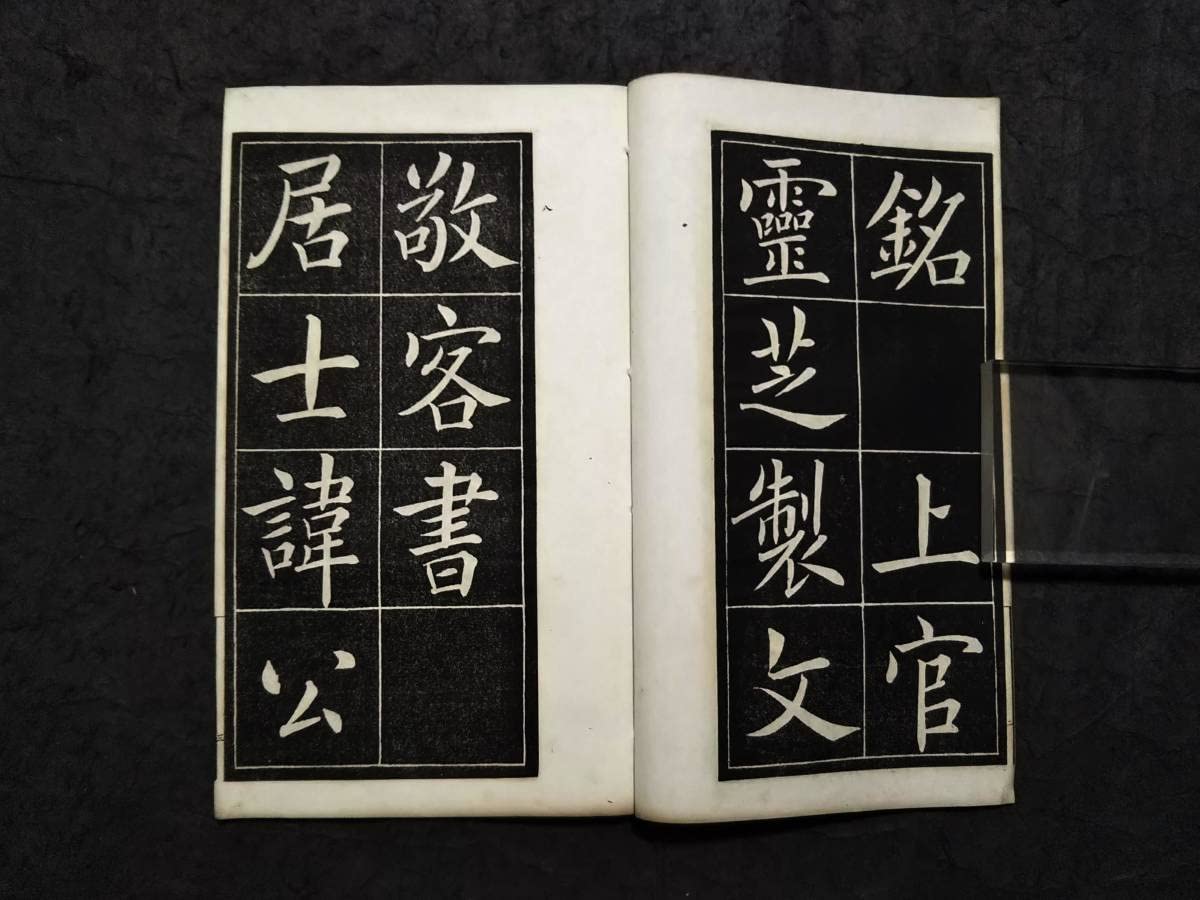 銘　上官
靈芝製文
敬客書
居士諱公